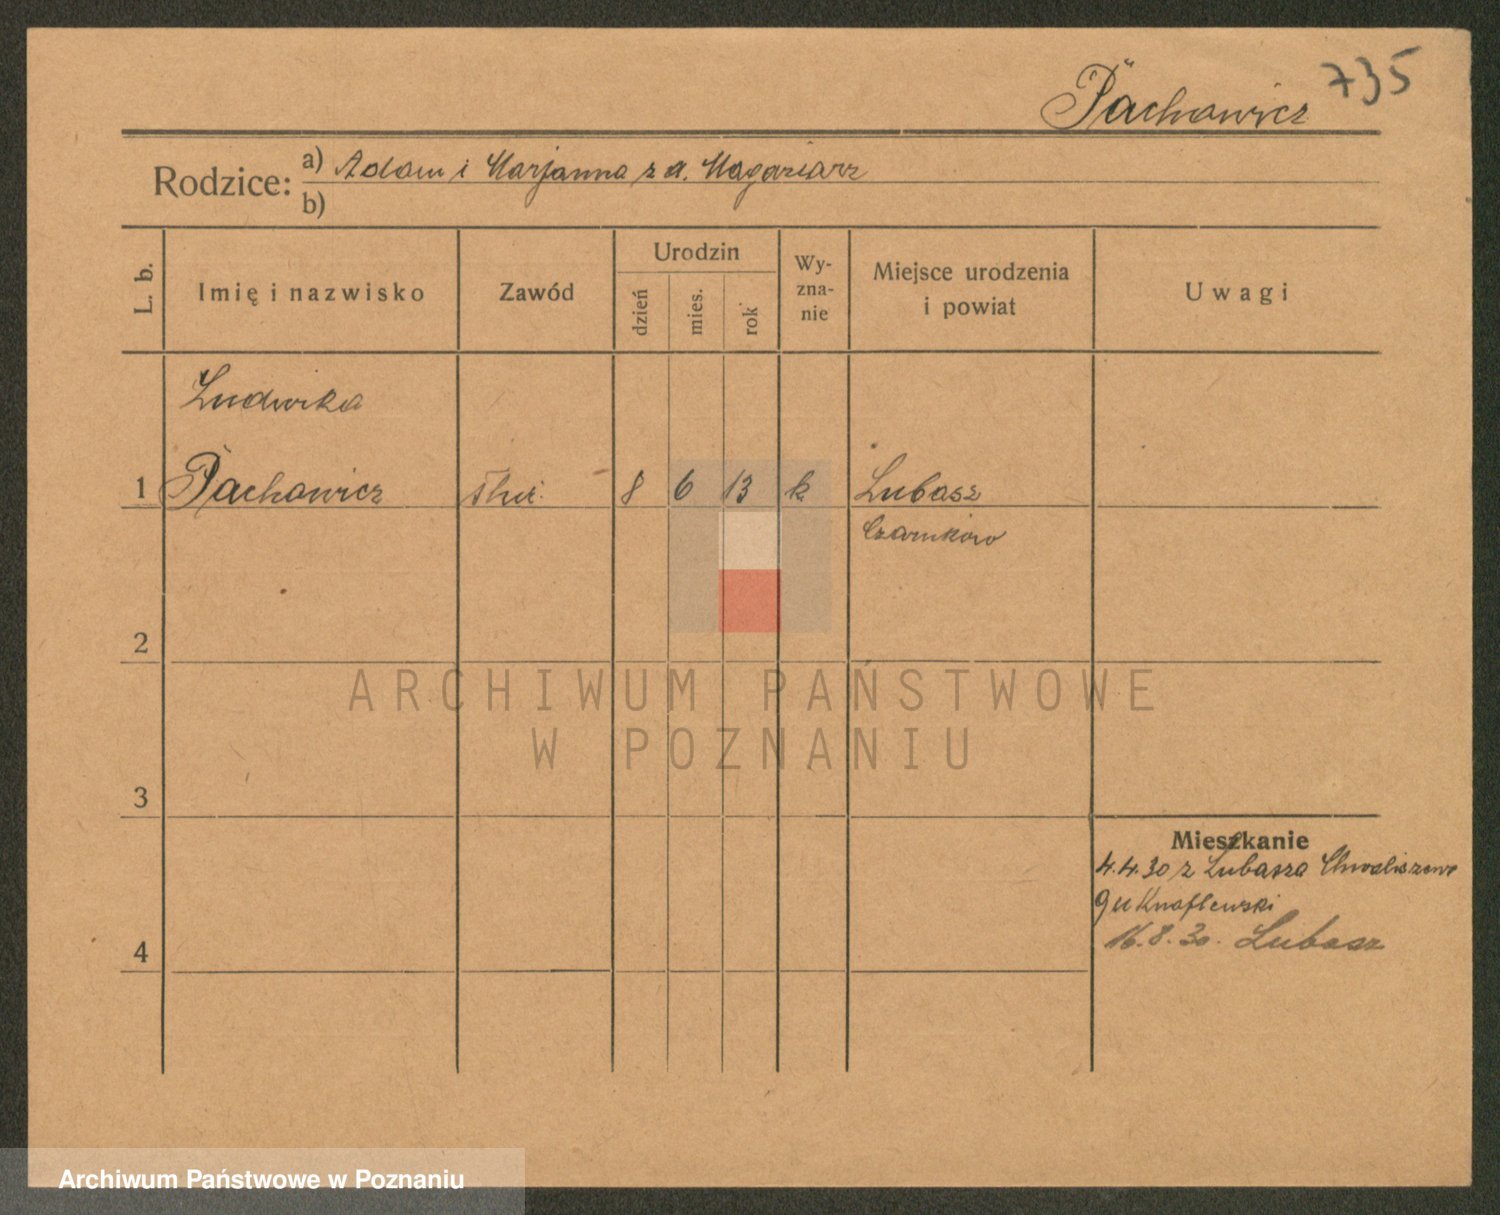 Pachowicz 735
Rodzice: a) Adam i Marjanna z d. Magaziarz
b)
L. b. Imię i nazwisko Zawód Urodzin dzień mies. rok Wy-zna-nie Miejsce urodzenia i powiat Uwagi
Ludwika
1 Pachowicz służ. 8 6 13 k Lubasz
Czarnków
2
ARCHIWUM PAŃSTWOWE
W POZNANIU
3
Mieszkanie
4.4.30 z Lubasza Chwaliszewo
9 u Knaflewski
16.8.30. Lubasz
4
Archiwum Państwowe w Poznaniu